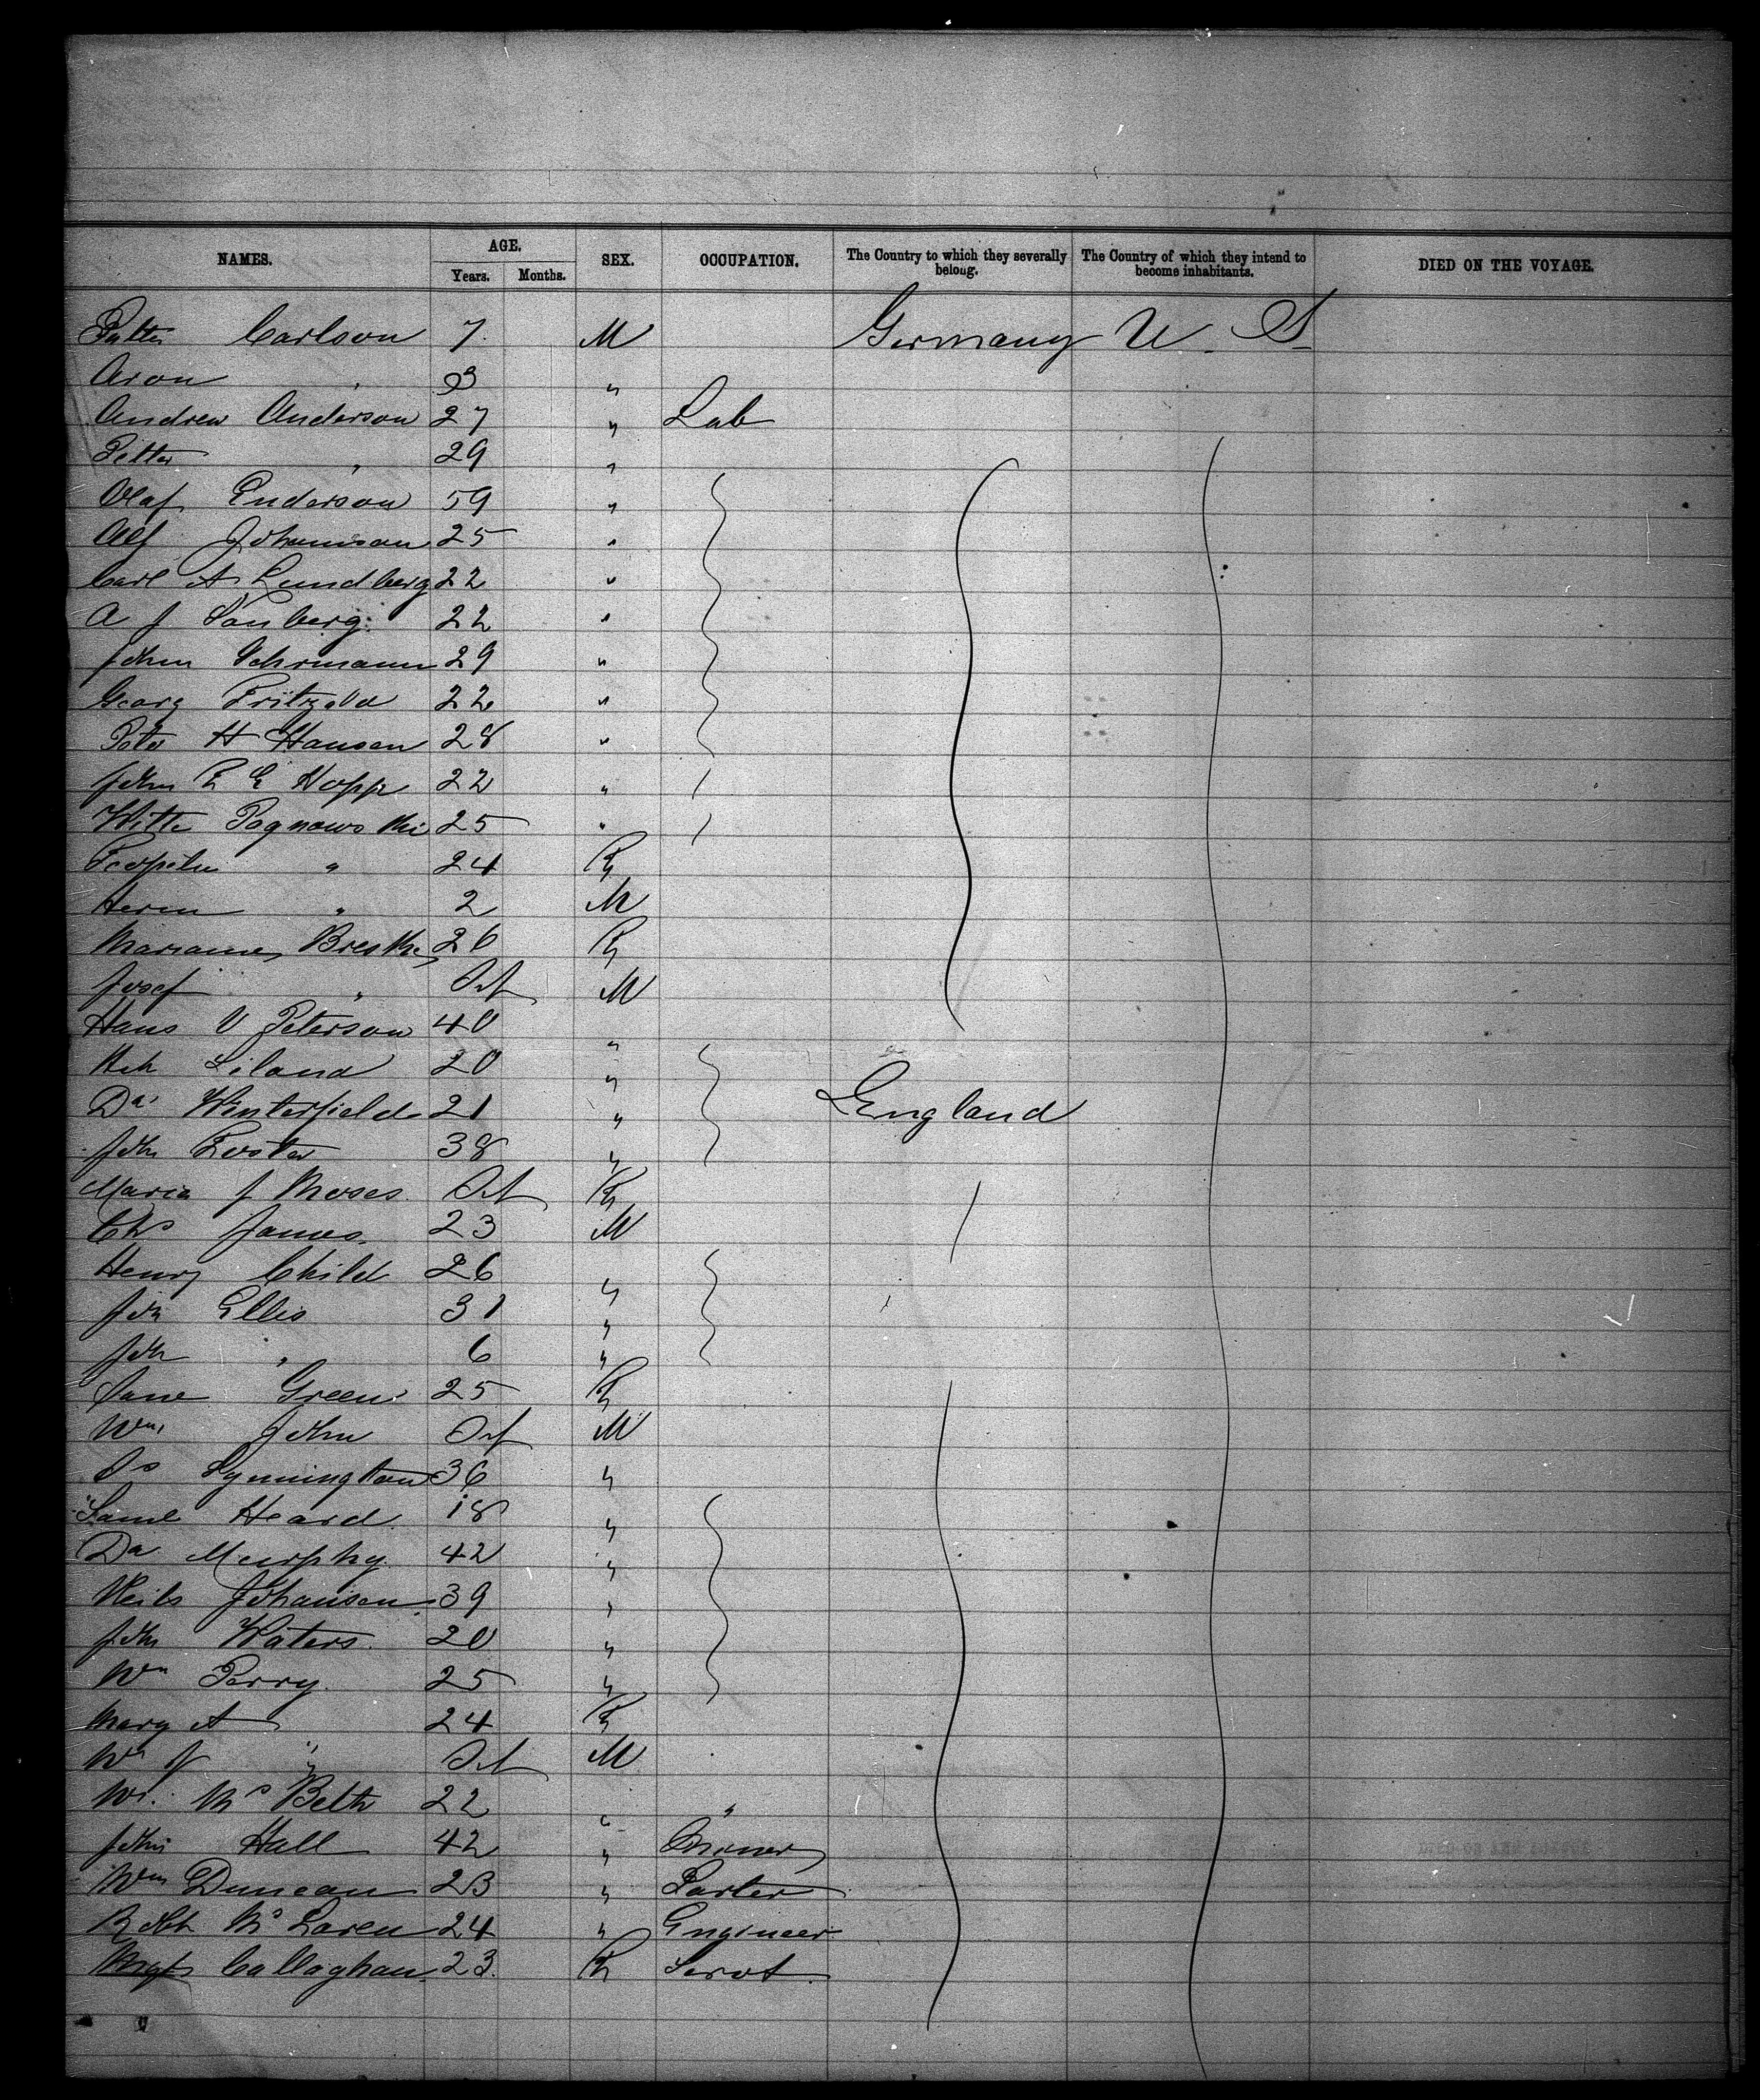 NAMES. AGE. SEX. OCCUPATION. The Country to which they severally belong. The Country of which they intend to become inhabitants. DIED ON THE VOYAGE.
Years. Months.
Petter Carlson 7 M Germany U. S
Aron " 3 "
Andrew Anderson 27 " Lab
Petter " 29 "
Olaf Enderson 59 "
Alf Johannson 25 "
Carl A Lundberg 22 "
A J Sanberg 22 "
John Gehrmann 29 "
Georg 22 "
Peter H Hansen 28 "
John F E Hopp 22 "
Witte Pognowski 25 "
24 F
Herm " 2 M
26 F
Josef " Inf M
Hans O Peterson 40 "
Liland 20 "
Da Winterfield 21 " England
John Foster 38 "
Maria J Moses Inf F
Chs James 23 M
Henry Child 26 "
Jn Ellis 31 "
Jn " 6 "
Jane Green 25 F
Wm John Inf M
Js Lymington 36 "
Saml Heard 18 "
Da Murphy 42 "
Neils Johansen 39 "
Jn Waters 20 "
Wm Perry 25 "
Mary A " 24 F
Wm J " Inf M
Wm McBeth 22 " "
John Hall 42 " Miner
Wm Duncan 23 " Porter
Robt McLaren 24 " Engineer
Mgt Callaghan 23 F Servt